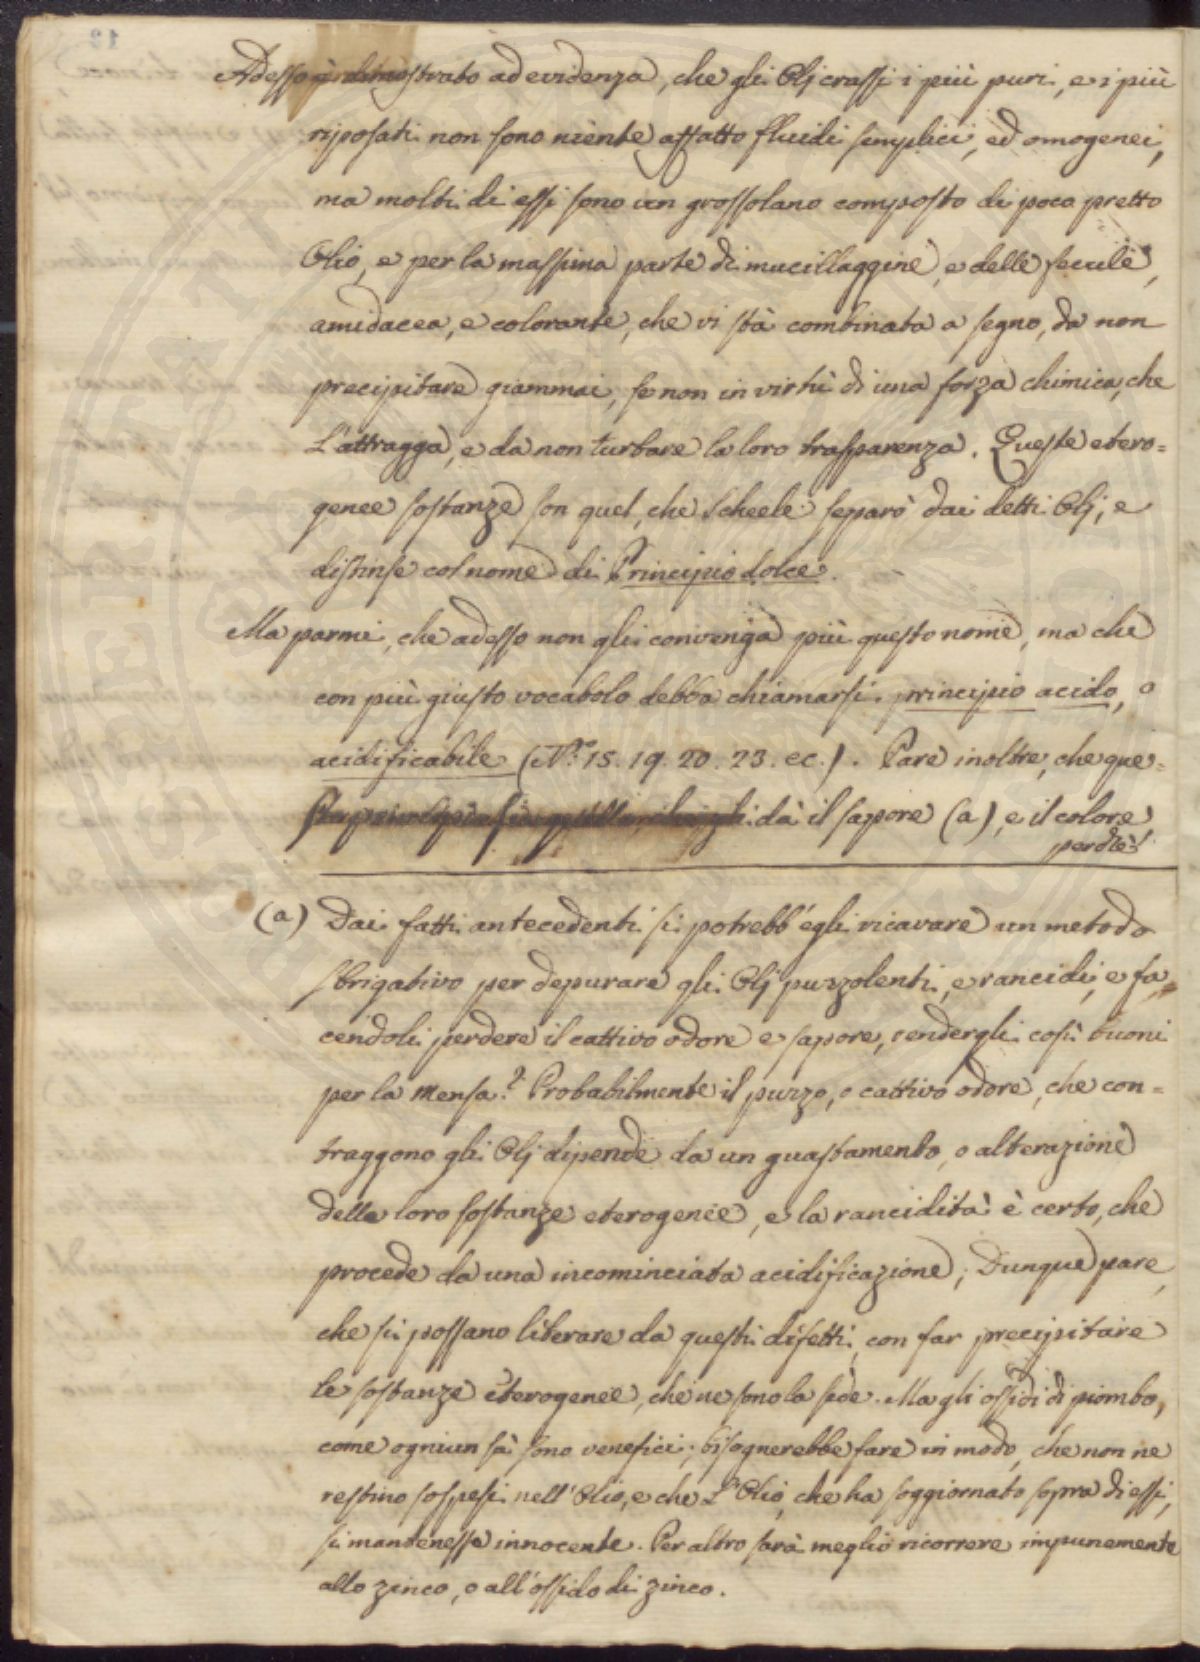 Adesso è dimostrato ad evidenza, che gli Olj crassi i più puri, e i più
riposati non sono niente affatto fluidi semplici, ed omogenei,
ma molti di essi sono un grossolano composto di poco pretto
Olio, e per la massima parte di mucillaggine, e delle fecule,
amidacea, e colorante, che vi stà combinata a segno, da non
precipitare giammai, se non in virtù di una forza chimica, che
L'attragga, e da non turbare la loro trasparenza. Queste etero=
genee sostanze son quel, che Scheele separò dai detti Olj, e
distinse col nome di Principio dolce.
Ma parmi, che adesso non gli convenga più questo nome, ma che
con più giusto vocabolo debba chiamarsi principio acido, o
acidificabile (N.º 15. 19. 20. 23. ec.). Pare inoltre, che que=
sto principio sia quello, che gli dà il sapore (a), e il colore
perchè
(a) Dai fatti antecedenti si potrebb'egli ricavare un metodo
sbrigativo per depurare gli Olj puzzolenti, e rancidi, e fa=
cendoli perdere il cattivo odore e sapore, rendergli così buoni
per la mensa? Probabilmente il puzzo, o cattivo odore, che con=
traggono gli Olj dipende da un guastamento, o alterazione
delle loro sostanze eterogenee, e la rancidità è certo, che
procede da una incominciata acidificazione; Dunque pare,
che si possano liberare da questi difetti, con far precipitare
le sostanze eterogenee, che ne sono la sede. Ma gli ossidi di piombo,
come ogniun sà sono venefici; bisognerebbe fare in modo, che non ne
restino sospesi nell'Olio, e che L'Olio, che ha soggiornato sopra di essi,
si mantenesse innocente. Per altro sarà meglio ricorrere impunemente
allo zinco, o all'ossido di zinco.